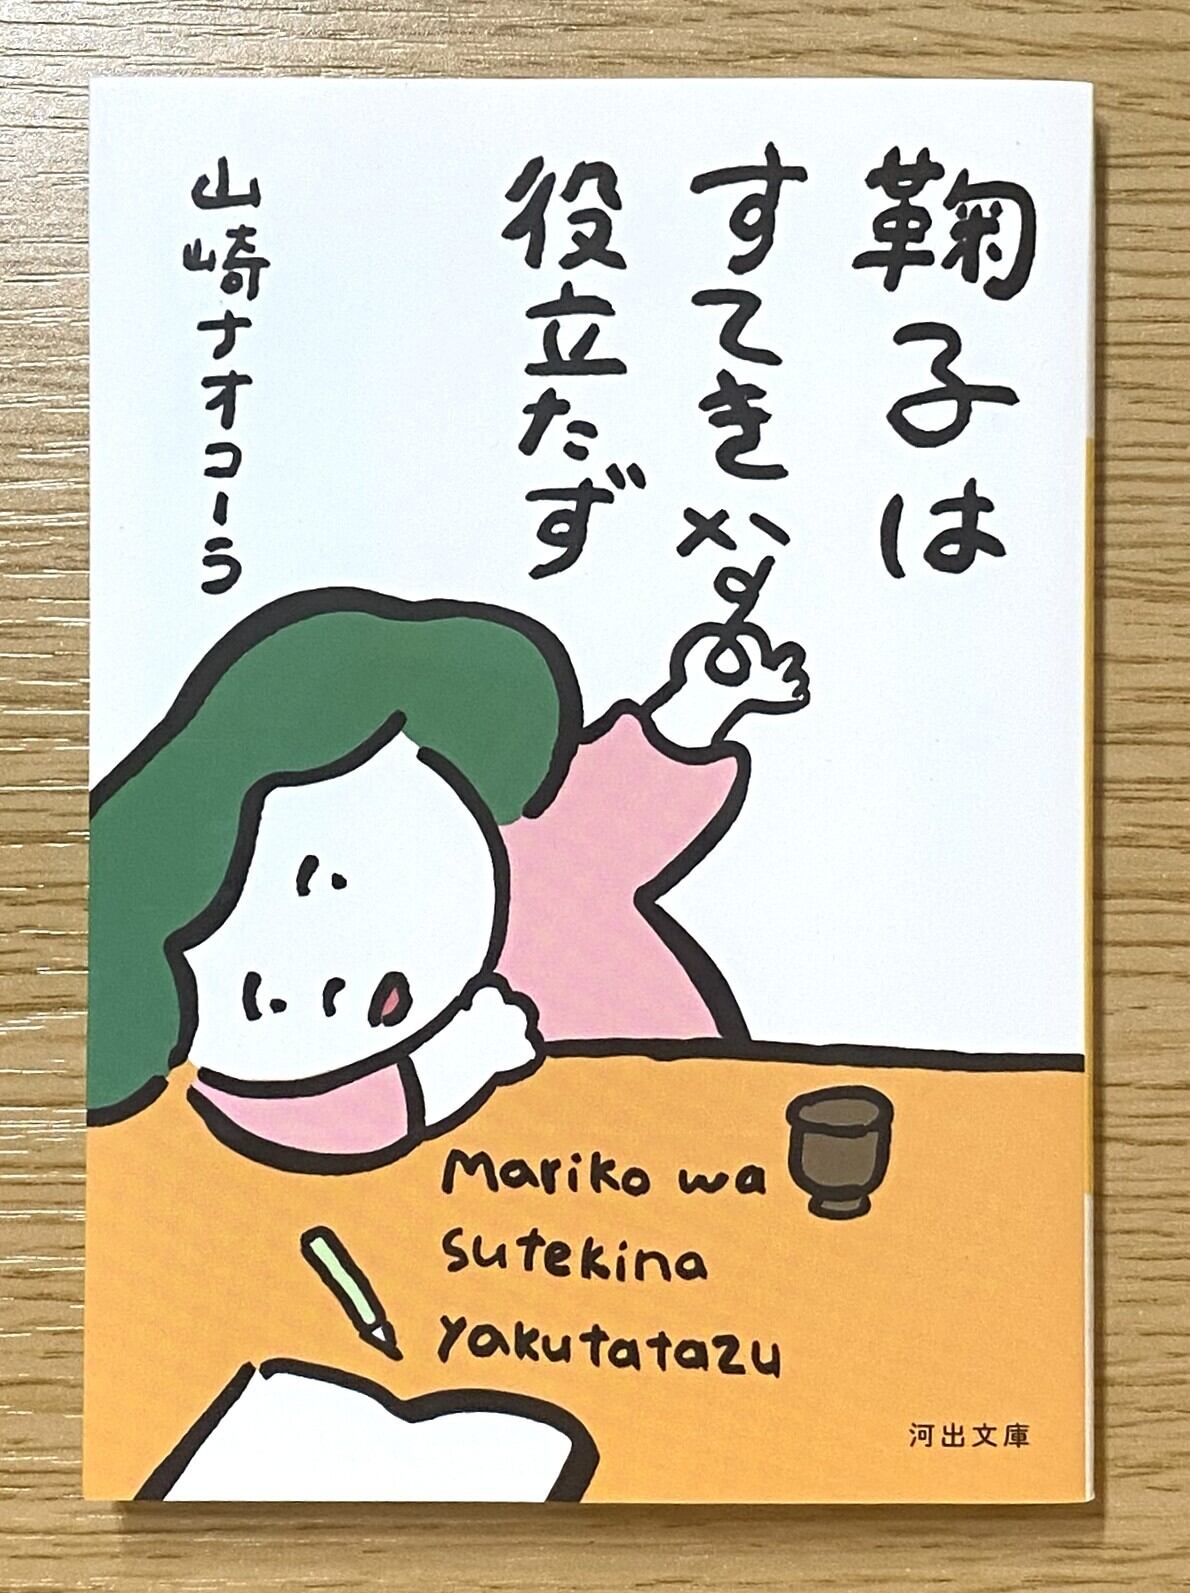 鞠子は
すてきな
役立たず
山崎ナオコーラ
Mariko wa
sutekina
yakutatazu
河出文庫